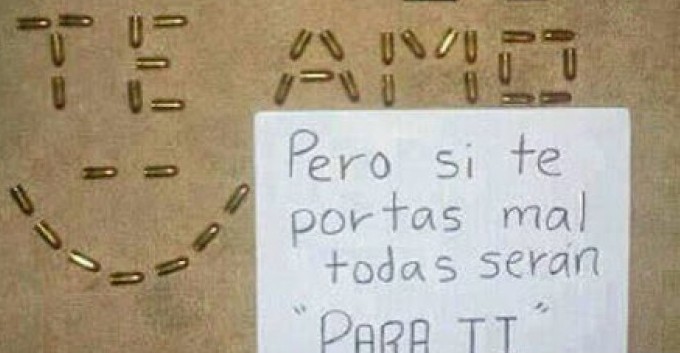 TE AMO
Pero si te
portas mal
todas serán
"PARA TI"